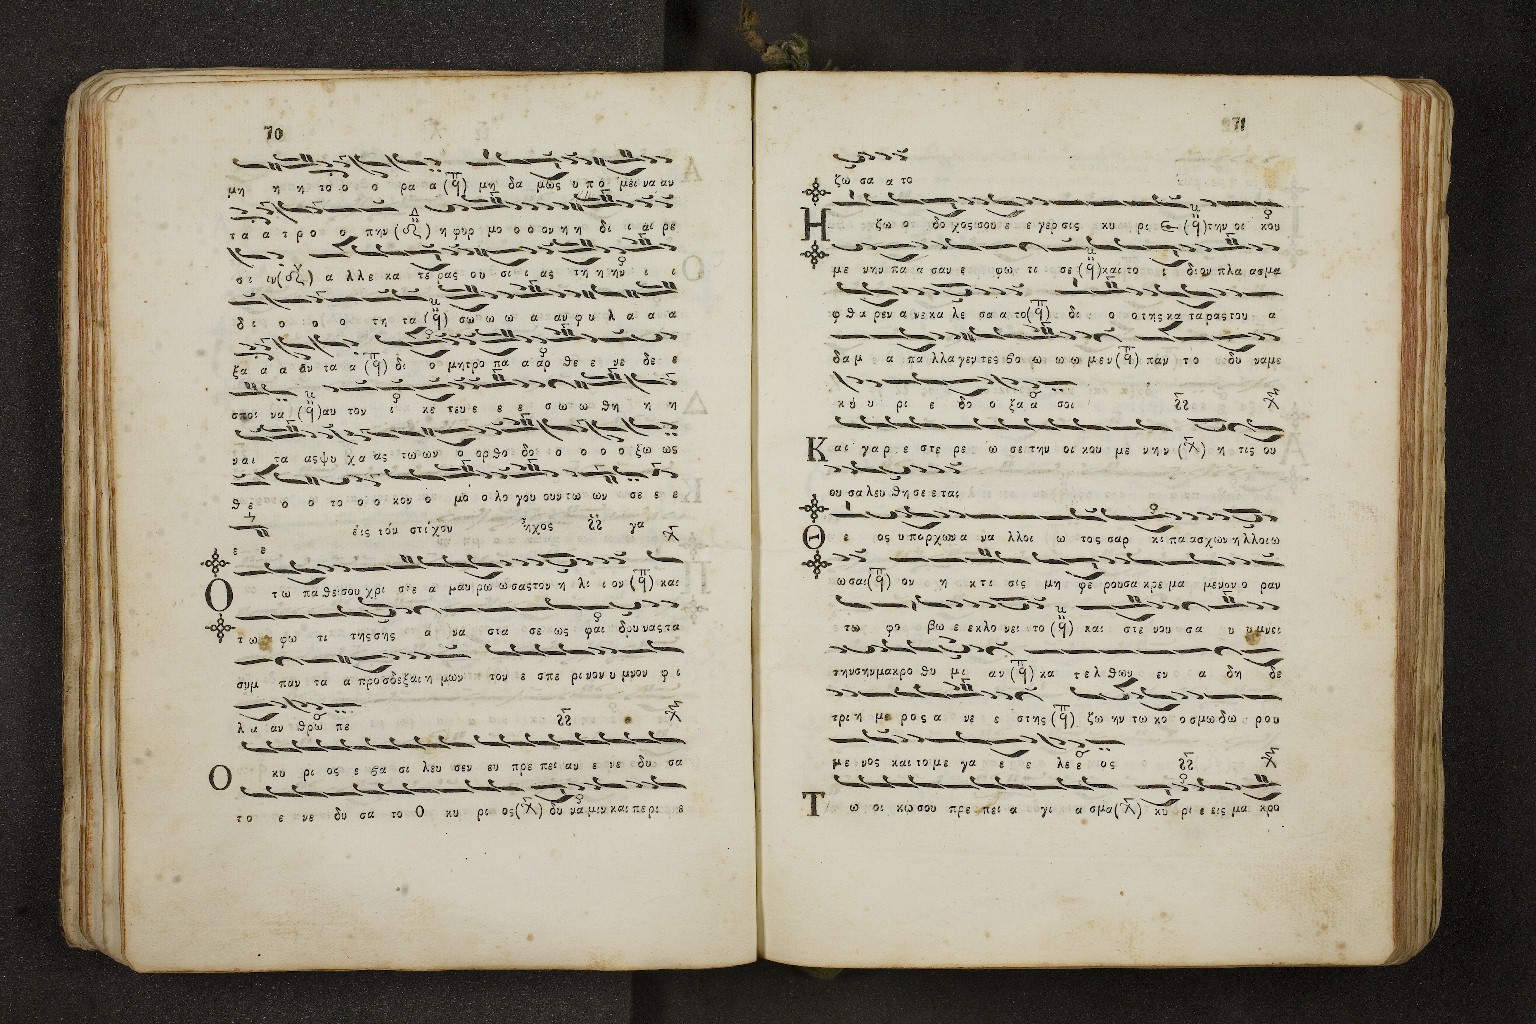 70
μη η η το ο ο ρα α (q) μη δα μως υ πο μει να αν
τα α τρο ο πην η φυρ μο ο ο ον η η δι ι αι ρε
σι ιν α λλε κα τε ρας ου σι ι ας τη η ην ι ι
δι ο ο ο τη τα (q) σω ω ω α αν φυ λα α α
ξα α α αν τα α (q) δι ο μητρο πα α αρ θε ε νε δε ε
σποι να (q) αυ τον ι κε τευ ε ε ε σω ω θη η η
ναι τα ας ψυ χα ας τω ων ο ορθο δο ο ο ο ο ξω ως
θε ο ο το ο ο κον ο μο ο λο γου ουν τω ων σε ε ε
ε ε εἰς τὸν στίχον ἦχος γα
Ο τω παθει σου χρι στε α μαυ ρω ω σας τον η λι ι ον (q) και
τω φω τι της σης α να στα σε ως φαι δρυ νας τα
συμ παν τα α προσδεξαι η μων τον ε σπε ρι νον υ μνον φι
λα αν θρω πε
Ο κυ ρι ος ε βα σι λευ σεν ευ πρε πει αν ε νε δυ σα
το ε νε δυ σα το Ο κυ ρι ος δυ να μιν και περι ε
71
ζω σα α το
Η ζω ο δο χος σου ε ε γερ σις κυ ρι ε (q) την οι κου
με νην πα α σαν ε φω τι σε (q) και το ι διον πλα ασμα
φθα ρεν α νε κα λε σα α το (q) δι ο ο της κα ταρας του α
δαμ α πα λλα γεντες βο ω ω ω μεν (q) παν το δυ ναμε
κυ υ ρι ε δο ο ξα α σοι
Και γαρ ε στε ρε ω σε την οι κου με νην η τις ου
ου σα λευ θη σε ε ται
Θε ος υ παρχων α να λλοι ω τος σαρ κι πα ασχων η λλοιω
ω σαι (q) ον η κτι σις μη φε ρουσα κρε μα μενον ο ραν
τω φο βω ε εκλο νει το (q) και στε νου σα υ υ μνει
την σην μακρο θυ μι αν (q) κα τελ θων εν α δη δε
τρι η με ρος α νε ε στης (q) ζω ην τω κο ο σμω δω ρου
με νος και το με γα ε ε λε ε ος
Τω οι κω σου πρε πει α γι α ασμα κυ ρι ε εις μα κρο